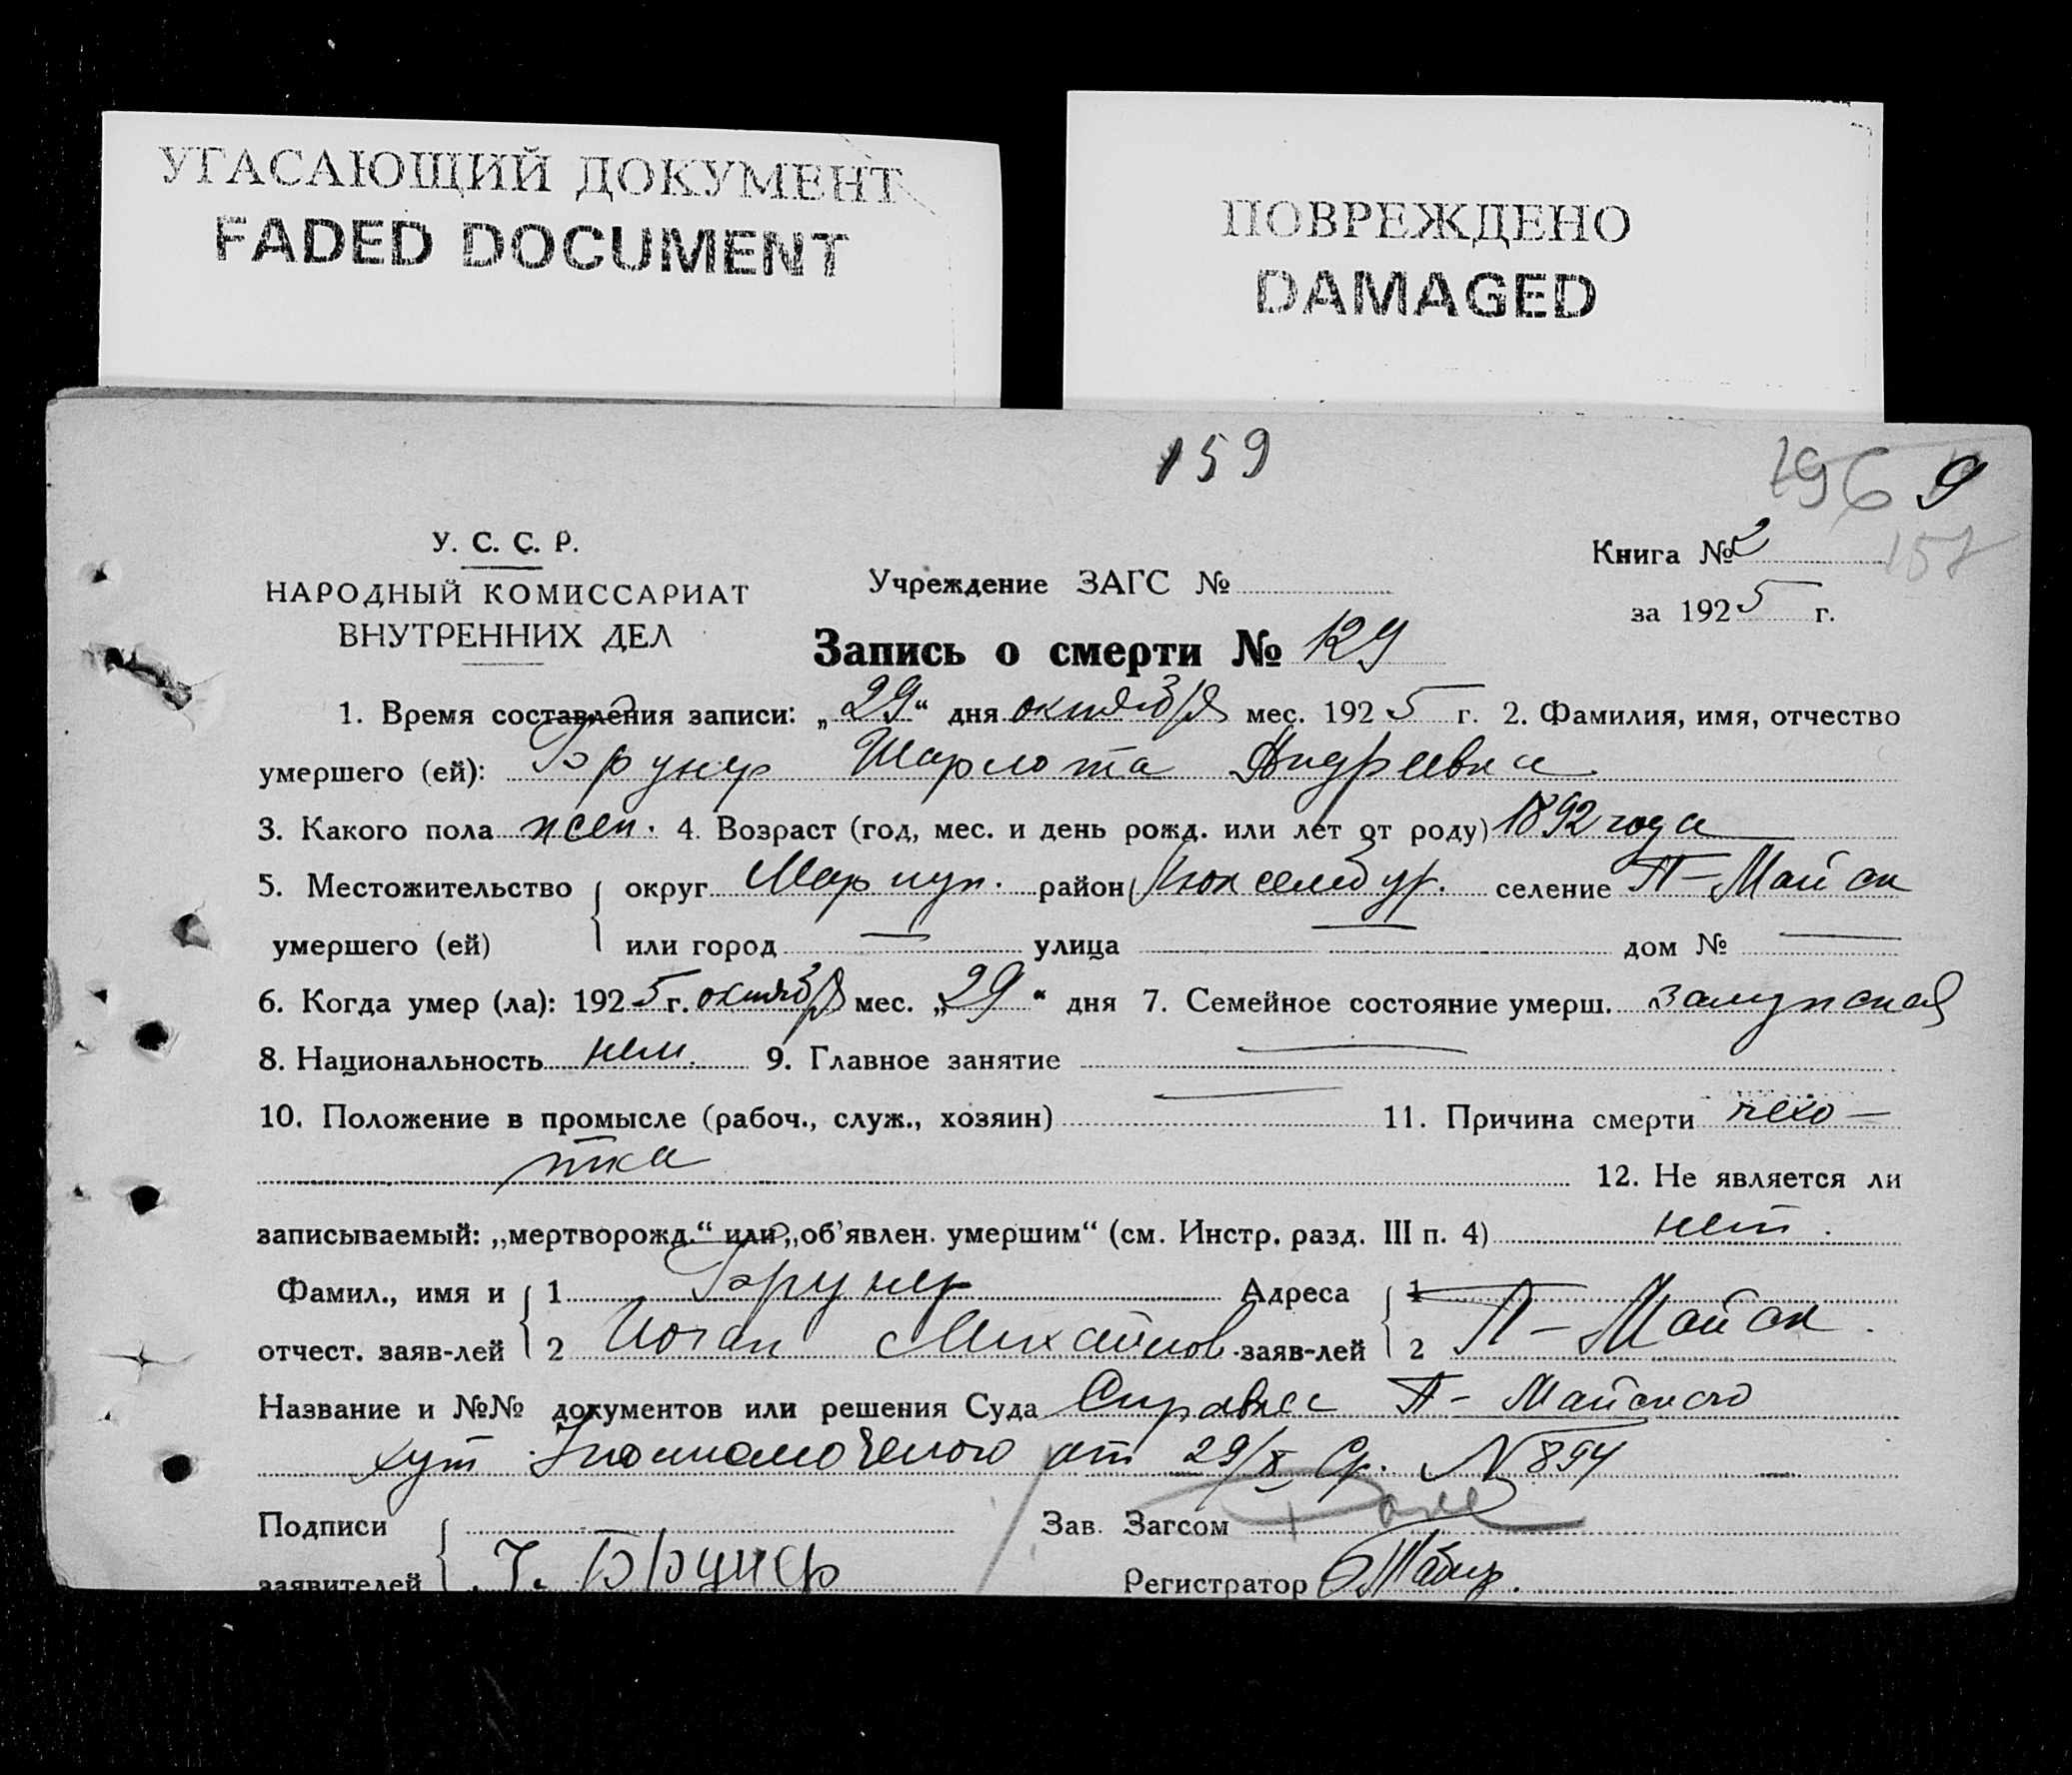 УГАСАЮЩИЙ ДОКУМЕНТ
FADED DOCUMENT
ПОВРЕЖДЕНО
DAMAGED
159
196 9
157
У. С. С. Р.
НАРОДНЫЙ КОМИССАРИАТ
ВНУТРЕННИХ ДЕЛ
Учреждение ЗАГС №
Книга № 2
за 1925 г.
Запись о смерти № 129
1. Время составления записи: „29“ дня октября мес. 1925 г. 2. Фамилия, имя, отчество
умершего (ей): Брунер Шарлота Андреевна
3. Какого пола жен. 4. Возраст (год, мес. и день рожд. или лет от роду) 1892 года
5. Местожительство округ Мариуп. район Люксембур. селение П-Майск
умершего (ей) или город — улица — дом № —
6. Когда умер (ла): 1925 г. октября мес. „29“ дня 7. Семейное состояние умерш. замужская
8. Национальность нем. 9. Главное занятие —
10. Положение в промысле (рабоч., служ., хозяин) — 11. Причина смерти чахо-
тка
12. Не является ли
записываемый: „мертворожд.“ или „об'явлен. умершим“ (см. Инстр. разд. III п. 4) нет.
Фамил., имя и 1 Брунер Адреса 1
отчест. заяв-лей 2 Иоган Михайлов. заяв-лей 2 П-Майск.
Название и №№ документов или решения Суда Справка П-Майского
хут Уполномоченого от 29/X Ср. N 894
Подписи Зав. Загсом
заявителей Брунер Регистратор